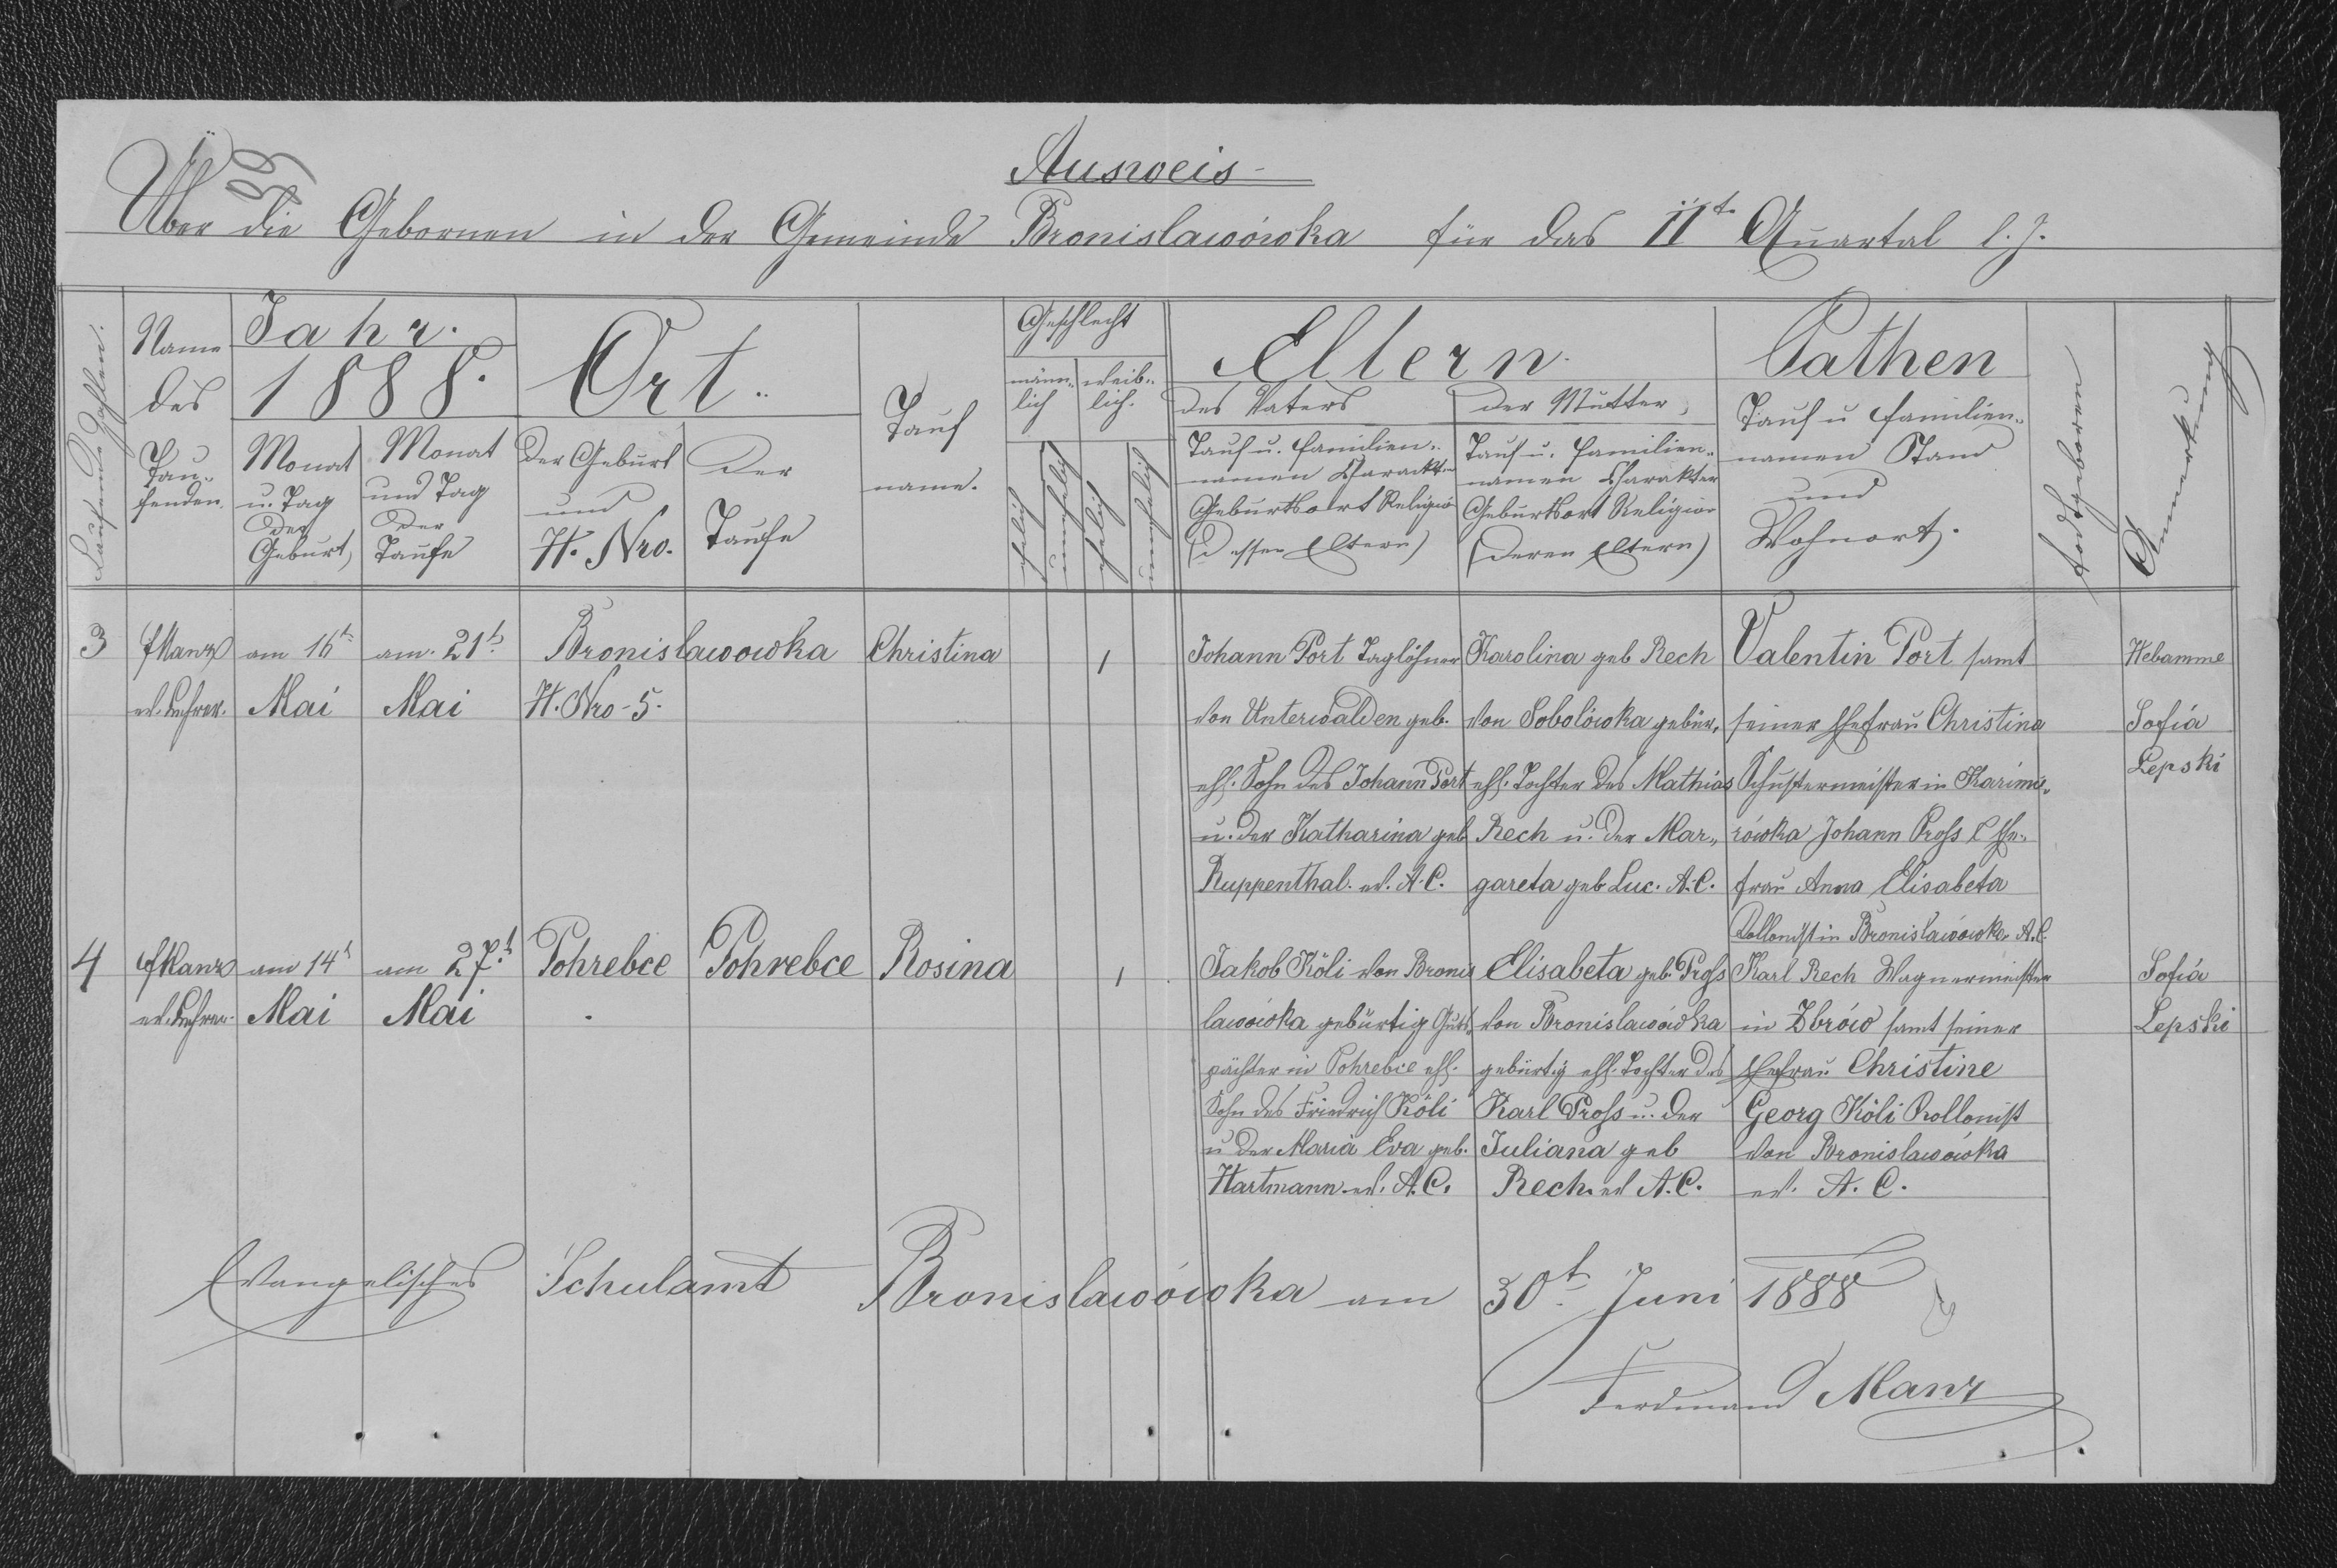 Ausweis
Über die Gebornen in der Gemeinde Bronislawówka für das IIt Quartal l. J.
Laufende Zahlen.
Name
des
Tau-
fenden.
Jahr.
1888.
Monat
u. Tag
der
Geburt
Monat
und Tag
der
Taufe
Ort.
der Geburt
und
H. Nro.
der
Taufe
Tauf
name.
Geschlecht
männ-
lich
weib-
lich.
ehelich
unehelich
ehelich
unehelich
Eltern.
des Vaters
Tauf u. Familien-
namen Charackter
Geburtsort Religion
(dessen Eltern)
der Mutter
Tauf u. Familien-
namen Charakter
Geburtsort Religion
(deren Eltern)
Pathen
Tauf u Familien-
namen Stand
und
Wohnort.
todtgeboren
Anmerkung
3
fManz
ev. Lehrer.
am 16t
Mai
am 21t
Mai
Bronislawowka
H. Nro - 5.
Christina
1
Johann Port Taglöhner
von Unterwalden geb.
ehl. Sohn des Johann Port
u. der Katharina geb
Ruppenthal. ev. A. C.
Karolina geb Rech
von Sobolówka gebür,
ehl. Tochter des Mathias
Rech u. der Mar-
gareta geb Luc. A. C.
Valentin Port samt
seiner Ehefrau Christina
Schustermeister in Karimi-
rówka Johann Pross Ehe-
frau Anna Elisabeta
Kollonist in Bronislawówka A. C.
Hebamme
Sofia
Lepski
4
fManz
ev. Lehrer.
am 14t
Mai
am 27t
Mai
Pohrebce
Pohrebce
Rosina
1
Jakob Köli von Bronis
lawówka gebürtig Guts-
pächter in Pohrebce ehl.
Sohn des Friedrich Köli
u der Maria Eva geb.
Hartmann ev. A. C.
Elisabeta geb. Pross
von Bronislawówka
gebürtig ehl. Tochter des
Karl Pross u. der
Juliana geb
Rech. ev A. C.
Karl Rech Wagnermeister
in Zbrów samt seiner
Ehefrau Christine
Georg Köli Kollonist
von Bronislawówka
ev. A. C.
Sofia
Lepski
Evangelisches Schulamt Bronislawówka am 30t Juni 1888
Ferdinand Manz